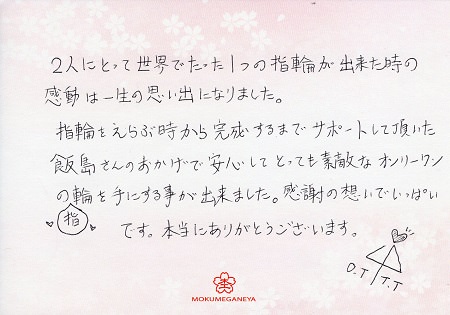 2人にとって世界でたった1つの指輪が出来た時の
感動は一生の思い出になりました。
指輪をえらぶ時から完成するまでサポートして頂いた
飯島さんのおかげで安心してとっても素敵なオンリーワン
の輪を手にする事が出来ました。感謝の想いでいっぱい
指
です。本当にありがとうございます。
O.T T.T
MOKUMEGANEYA